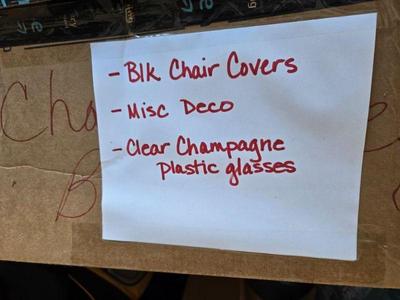 - Blk Chair Covers
- Misc Deco
- Clear Champagne
Plastic glasses